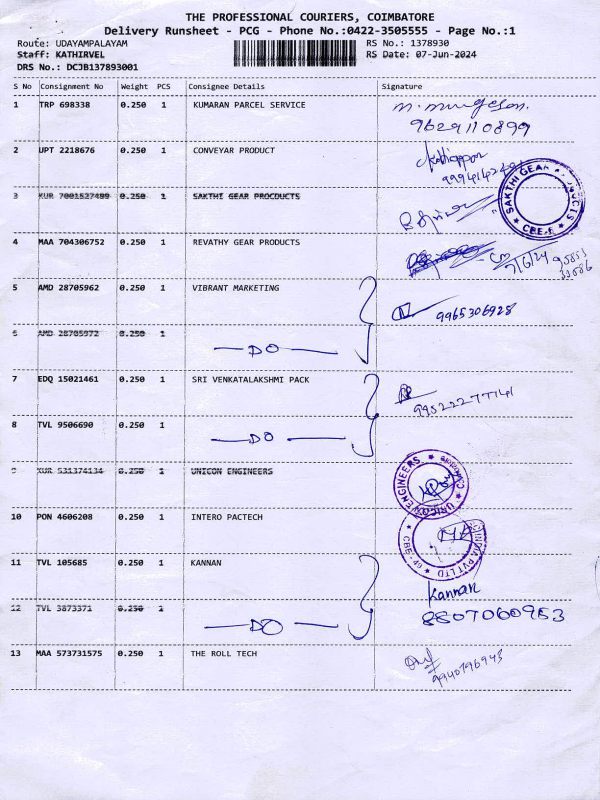 THE PROFESSIONAL COURIERS, COIMBATORE
Delivery Runsheet - PCG - Phone No.:0422-3505555 - Page No.:1
Route: UDAYAMPALAYAM RS No.: 1378930
Staff: KATHIRVEL RS Date: 07-Jun-2024
DRS No.: DCJB137893001
S No Consignment No Weight PCS Consignee Details Signature
1 TRP 698338 0.250 1 KUMARAN PARCEL SERVICE
9629110899
2 UPT 2218676 0.250 1 CONVEYAR PRODUCT
3 KUR 7001527409 0.250 1 SAKTHI GEAR PROCDUCTS
SAKTHI GEAR PRODUCTS
CBE-6
4 MAA 704306752 0.250 1 REVATHY GEAR PRODUCTS
7/6/24
5 AMD 28705962 0.250 1 VIBRANT MARKETING
9965306928
6 AMD 28705972 0.250 1
DO
7 EDQ 15021461 0.250 1 SRI VENKATALAKSHMI PACK
9952227741
8 TVL 9506690 0.250 1
DO
9 KUR 531374134 0.250 1 UNICON ENGINEERS
UNICON ENGINEERS
10 PON 4606208 0.250 1 INTERO PACTECH
INDIA PVT LTD
CBE-49
11 TVL 105685 0.250 1 KANNAN
Kannan
12 TVL 3873371 0.250 1
DO
8807060953
13 MAA 573731575 0.250 1 THE ROLL TECH
9940796943